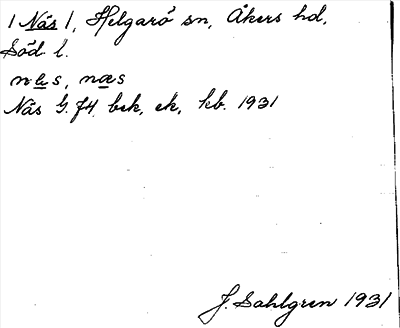 | Näs |, Helgarö sn, Åkers hd,
Söd l.
næs, næs
Näs G. J4, bek, ek, kb. 1931
J. Sahlgren 1931